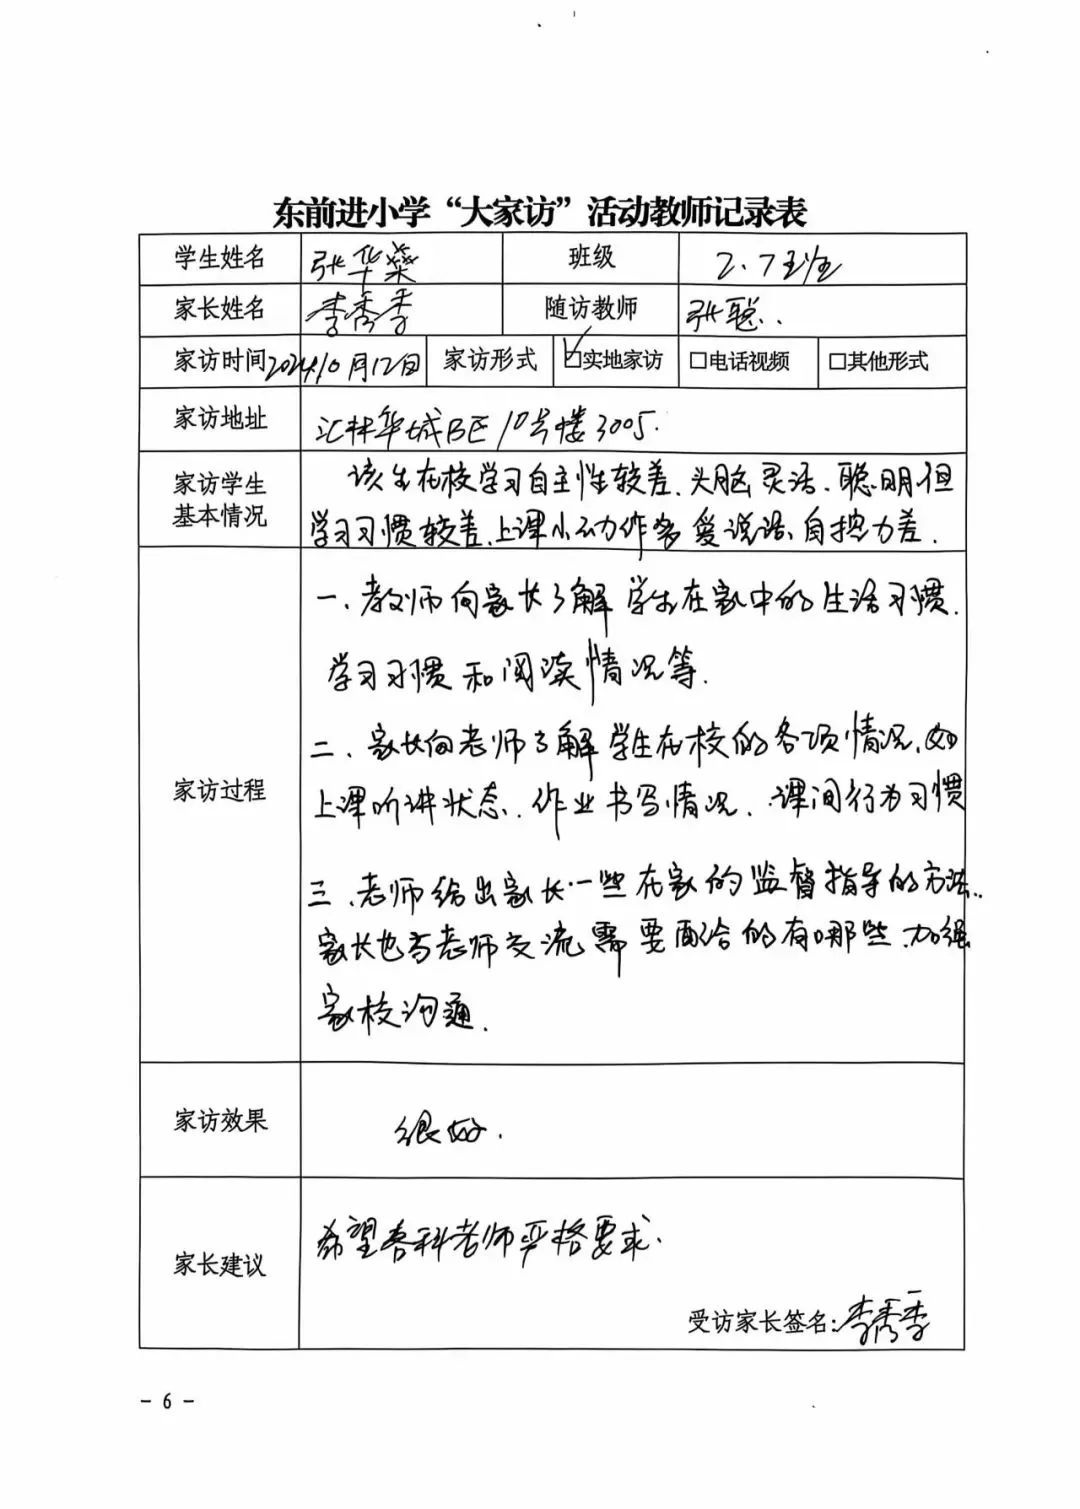 东前进小学“大家访”活动教师记录表
学生姓名 张华燊 班级 2.7班
家长姓名 李秀季 随访教师 张聪.
家访时间 2024.10月12日 家访形式 ☑实地家访 □电话视频 □其他形式
家访地址 汇林华城B区10号楼3005.
家访学生基本情况
该生在校学习自主性较差、头脑灵活、聪明但
学习习惯较差、上课小动作多 爱说话、自控力差.
家访过程
一、教师向家长了解学生在家中的生活习惯.
学习习惯和阅读情况等.
二、家长向老师了解学生在校的各项情况、如
上课听讲状态、作业书写情况、课间行为习惯
三、老师给出家长一些在家的监督指导的方法..
家长也与老师交流需要配合的有哪些、加强
家校沟通.
家访效果 很好.
家长建议 希望各科老师严格要求.
受访家长签名:李秀季
- 6 -